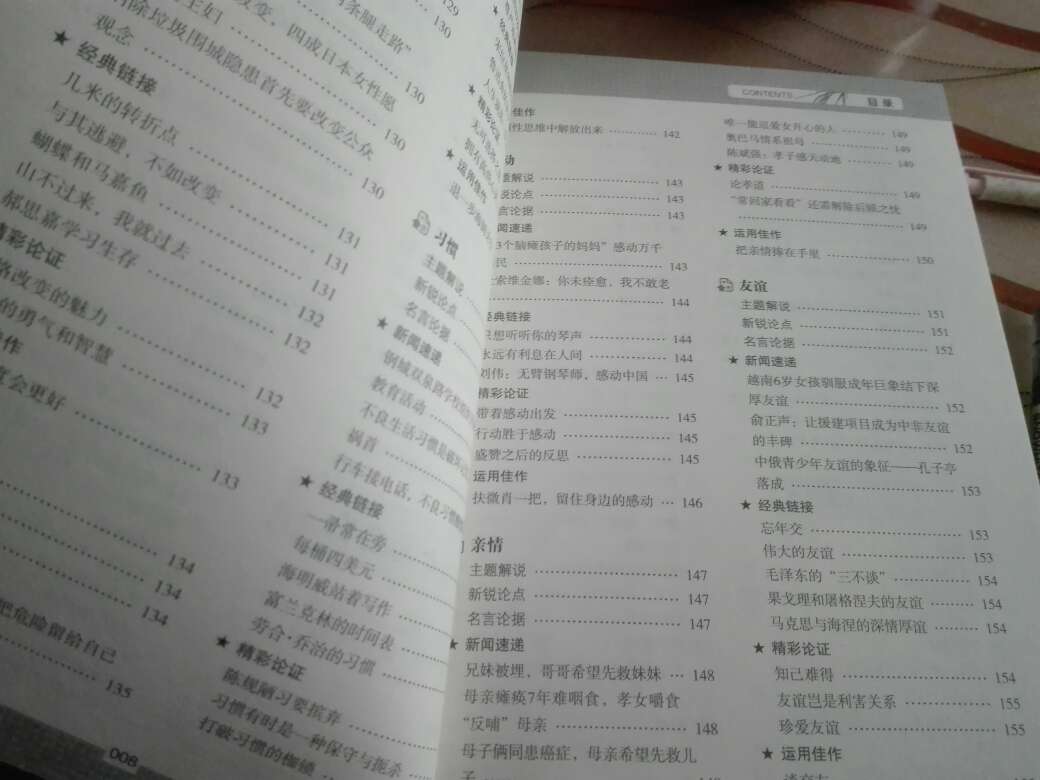 129
条腿走路” 130
改变，四成日本女性愿
主妇 130
消除垃圾围城隐患首先要改变公众
观念 130
★ 经典链接
几米的转折点 131
与其逃避，不如改变 131
蝴蝶和马嘉鱼 131
山不过来，我就过去 132
郝思嘉学习生存 132
精彩论证
改变的魅力 132
的勇气和智慧 133
作
会更好 133
134
134
134
把危险留给自己
135
008
★ 精彩论证
★ 运用佳作
习惯
主题解说
新锐论点
名言论据
★ 新闻速递
教育活动
不良生活习惯是
祸首
行车接电话，不良习惯
★ 经典链接
一帘常在旁
每桶四美元
海明威站着写作
富兰克林的时间表
劳合·乔治的习惯
★ 精彩论证
陈规陋习要摈弃
习惯有时是一种保守与扼杀
打破习惯的枷锁
CONTENTS 目录
佳作
性思维中解放出来 142
动
题解说 143
锐论点 143
言论据 143
闻速递
3个脑瘫孩子的妈妈”感动万千
民 143
索维金娜：你未痊愈，我不敢老
144
经典链接
只想听听你的琴声 144
永远有利息在人间 144
刘伟：无臂钢琴师，感动中国 145
精彩论证
带着感动出发 145
行动胜于感动 145
盛赞之后的反思 145
运用佳作
扶微肖一把，留住身边的感动 146
亲情
主题解说 147
新锐论点 147
名言论据 147
★ 新闻速递
兄妹被埋，哥哥希望先救妹妹 148
母亲瘫痪7年难咽食，孝女嚼食
“反哺”母亲 148
母子俩同患癌症，母亲希望先救儿
子
唯一能逗爱女开心的人 149
奥巴马情系祖母 149
陈斌强：孝子感天动地 149
★ 精彩论证
论孝道 149
“常回家看看”还需解除后顾之忧
149
★ 运用佳作
把亲情捧在手里 150
友谊
主题解说 151
新锐论点 151
名言论据 152
★ 新闻速递
越南6岁女孩驯服成年巨象结下深
厚友谊 152
俞正声：让援建项目成为中非友谊
的丰碑 152
中俄青少年友谊的象征——孔子亭
落成 153
★ 经典链接
忘年交 153
伟大的友谊 153
毛泽东的“三不谈” 154
果戈理和屠格涅夫的友谊 154
马克思与海涅的深情厚谊 154
★ 精彩论证
知己难得 154
友谊岂是利害关系 155
珍爱友谊 155
★ 运用佳作